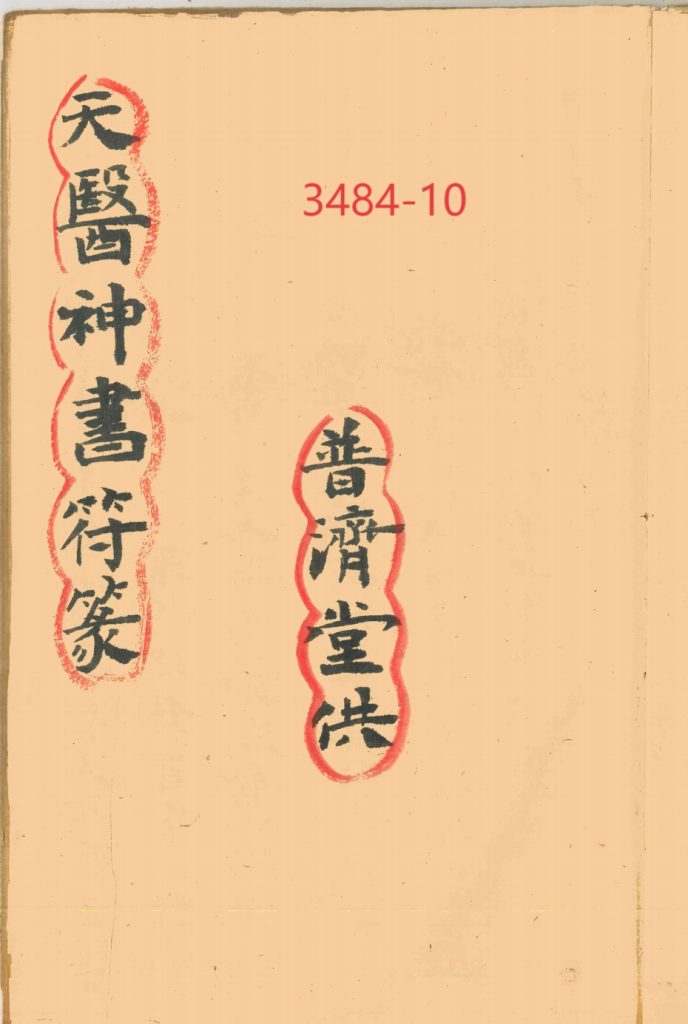 天醫神書符篆
3484-10
普濟堂供